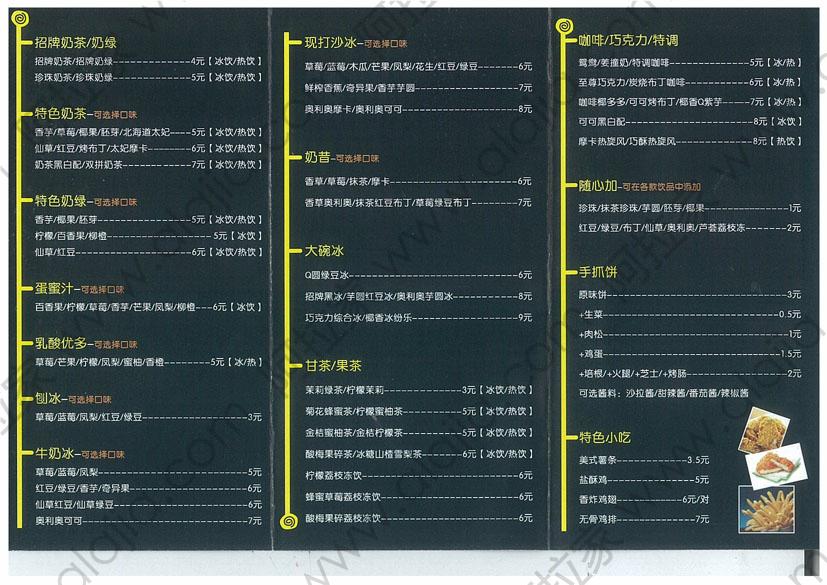 招牌奶茶/奶绿
招牌奶茶/招牌奶绿--------------4元【冰饮/热饮】
珍珠奶茶/珍珠奶绿--------------5元【冰饮/热饮】
特色奶茶-可选择口味
香芋/草莓/椰果/胚芽/北海道太妃----5元【冰饮/热饮】
仙草/红豆/烤布丁/太妃摩卡--------6元【冰饮/热饮】
奶茶黑白配/双拼奶茶-------------7元【冰饮/热饮】
特色奶绿-可选择口味
香芋/椰果/胚芽-----------------5元【冰饮/热饮】
柠檬/百香果/柳橙------------------5元【冰饮】
仙草/红豆---------------------6元【冰饮/热饮】
蛋蜜汁-可选择口味
百香果/柠檬/草莓/香芋/芒果/凤梨/柳橙---6元【冰饮】
乳酸优多-可选择口味
草莓/芒果/柠檬/凤梨/蜜柚/香橙--------5元【冰/热】
刨冰-可选择口味
草莓/蓝莓/凤梨/红豆/绿豆----------------3元
牛奶冰-可选择口味
草莓/蓝莓/凤梨-----------------------5元
红豆/绿豆/香芋/奇异果------------------6元
仙草红豆/仙草绿豆---------------------6元
奥利奥可可--------------------------7元
现打沙冰-可选择口味
草莓/蓝莓/木瓜/芒果/凤梨/花生/红豆/绿豆------6元
鲜榨香蕉/奇异果/香芋芋圆----------------7元
奥利奥摩卡/奥利奥可可------------------8元
奶昔-可选择口味
香草/草莓/抹茶/摩卡--------------------6元
香草奥利奥/抹茶红豆布丁/草莓绿豆布丁-------7元
大碗冰
Q圆绿豆冰---------------------------6元
招牌黑冰/芋圆红豆冰/奥利奥芋圆冰----------8元
巧克力综合冰/椰香冰纷乐-----------------9元
甘茶/果茶
茉莉绿茶/柠檬茉莉------------3元【冰饮/热饮】
菊花蜂蜜茶/柠檬蜜柚茶---------5元【冰饮/热饮】
金桔蜜柚茶/金桔柠檬茶---------5元【冰饮/热饮】
酸梅果碎茶/冰糖山楂雪梨茶------6元【冰饮/热饮】
柠檬荔枝冻饮------------------------6元
蜂蜜草莓荔枝冻饮---------------------6元
酸梅果碎荔枝冻饮---------------------6元
咖啡/巧克力/特调
鸳鸯/姜撞奶/特调咖啡------------5元【冰/热】
至尊巧克力/炭烧布丁咖啡----------6元【冰/热】
咖啡椰多多/可可烤布丁/椰香Q紫芋----7元【冰/热】
可可黑白配--------------------8元【冰饮】
摩卡热旋风/巧酥热旋风------------8元【热饮】
随心加-可在各款饮品中添加
珍珠/抹茶珍珠/芋圆/胚芽/椰果-------------1元
红豆/绿豆/布丁/仙草/奥利奥/芦荟荔枝冻------2元
手抓饼
原味饼-----------------------------3元
+生菜----------------------------0.5元
+肉松------------------------------1元
+鸡蛋----------------------------1.5元
+培根/+火腿/+芝士/+烤肠---------------2元
可选酱料：沙拉酱/甜辣酱/番茄酱/辣椒酱
特色小吃
美式薯条----------3.5元
盐酥鸡-------------5元
香炸鸡翅----------6元/对
无骨鸡排-----------7元